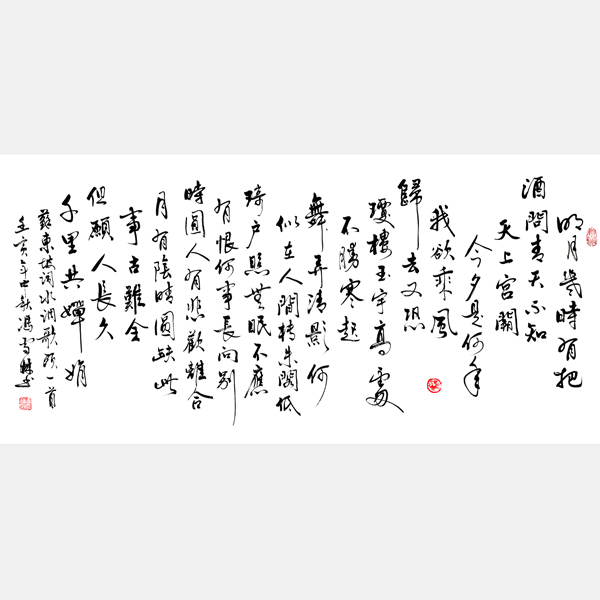 明月幾時有把
酒問青天不知
天上宮闕
今夕是何年
我欲乘風
歸去又恐
瓊樓玉宇高處
不勝寒起
舞弄清影何
似在人間轉朱閣低
綺户照無眠不應
有恨何事長向別
時圓人有悲歡離合
月有陰晴圓缺此
事古難全
但願人長久
千里共嬋娟
蘇東坡詞水調歌頭一首
年中秋馮雪